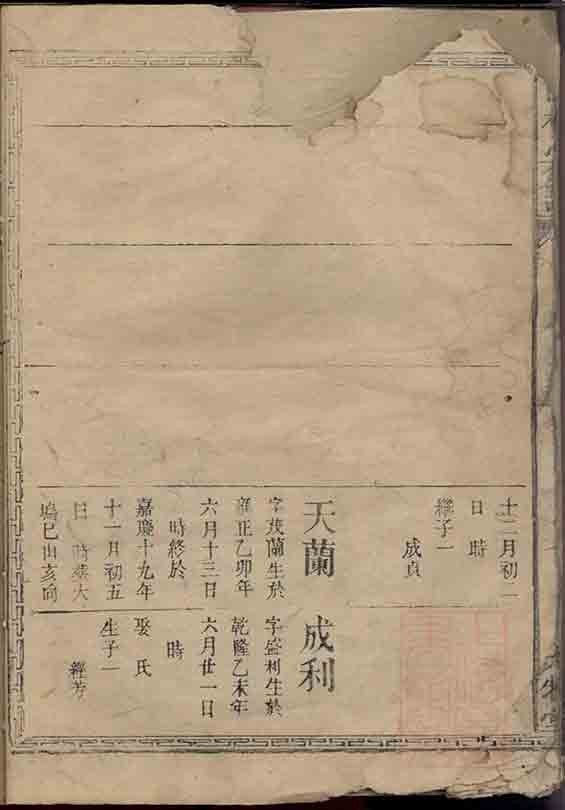 十二月初二
日 時
繼子一
成貞
天蘭
字茂蘭生於
雍正乙卯年
六月十三日
時終於
嘉慶十九年
十一月初五
日 時葬大
塢巳山亥向
成利
字盛利生於
乾隆乙未年
六月廿一日
時
娶 氏
生子一
經芳